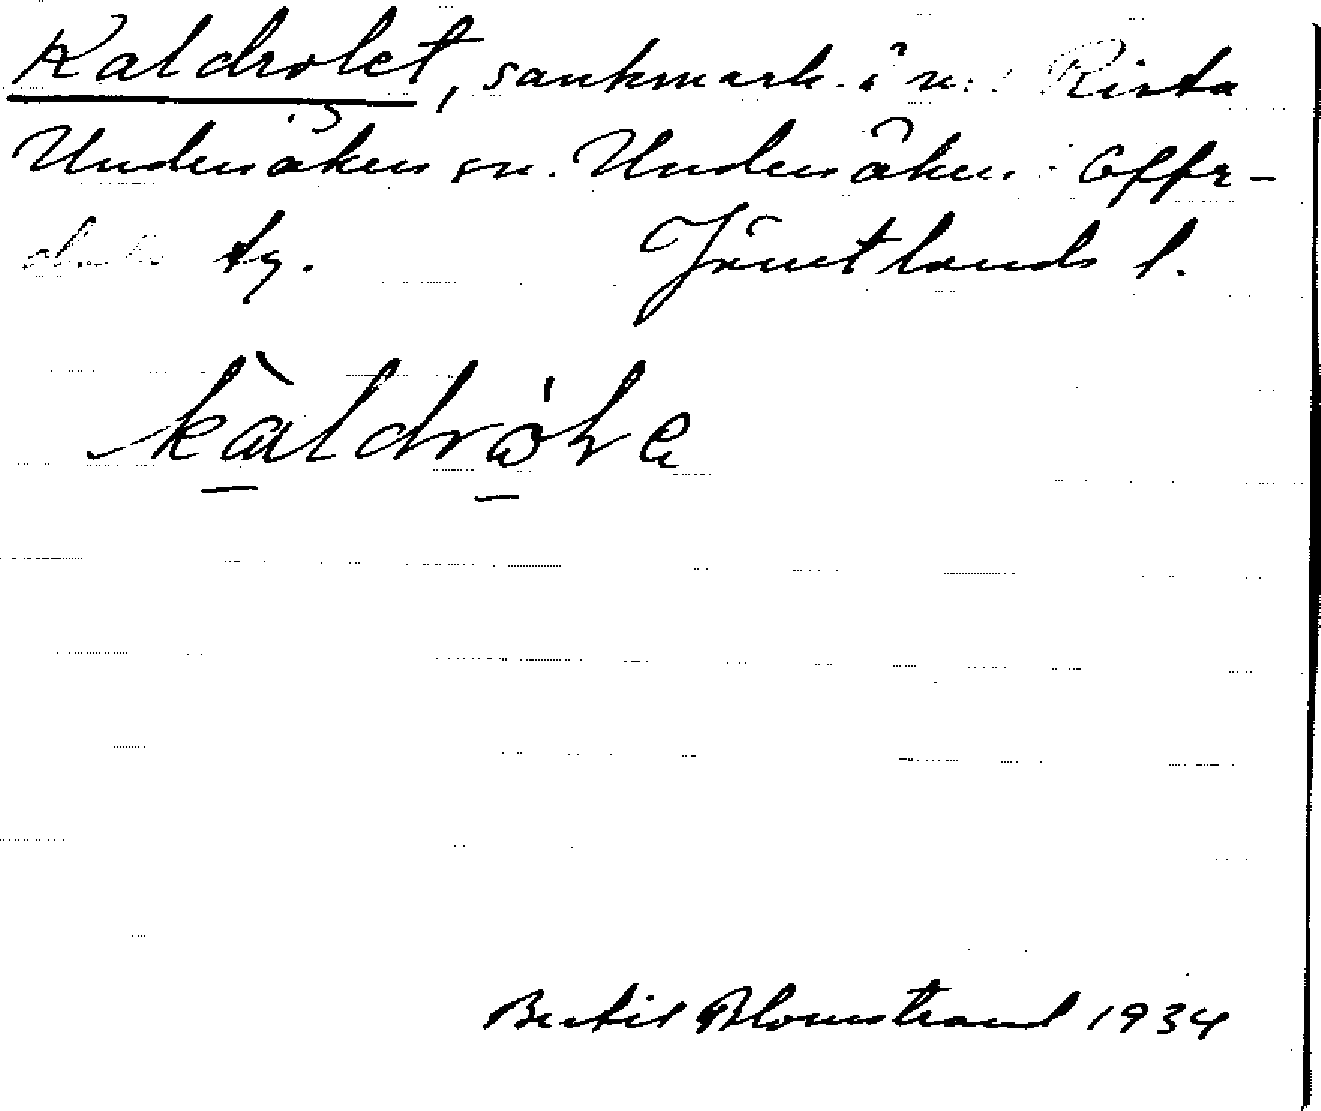 Kaldrolet, sankmark i n. Rista
Undersåkers sn. Undersåkers Offr-
dals tg. Jämtlands l.
kàldrὼle
Bertil Blomstrand 1934